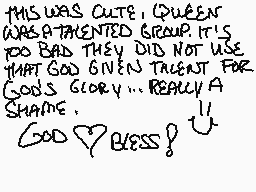 THIS WAS CUTE, QUEEN
WAS A TALENTED GROUP. IT'S
TOO BAD THEY DID NOT USE
THAT GOD GIVEN TALENT FOR
GOD'S GLORY... REALLY A
SHAME.
GOD ♡ BLESS!